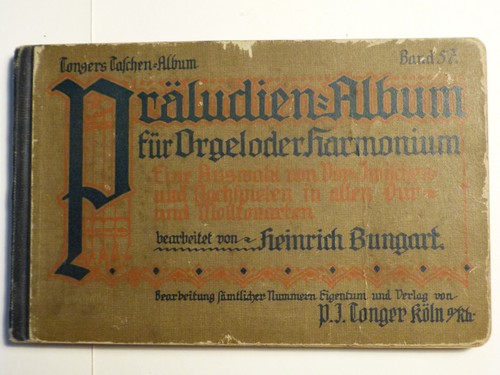 Tongers Taschen-Album.
Band 57.
Präludien-Album
für Orgel oder Harmonium
Eine Auswahl von Vor-, Zwischen-
und Nachspielen in allen Dur-
und Molltonarten
bearbeitet von Heinrich Bungart.
Bearbeitung sämtlicher Nummern Eigentum und Verlag von
P. J. Tonger Köln a/Rh.